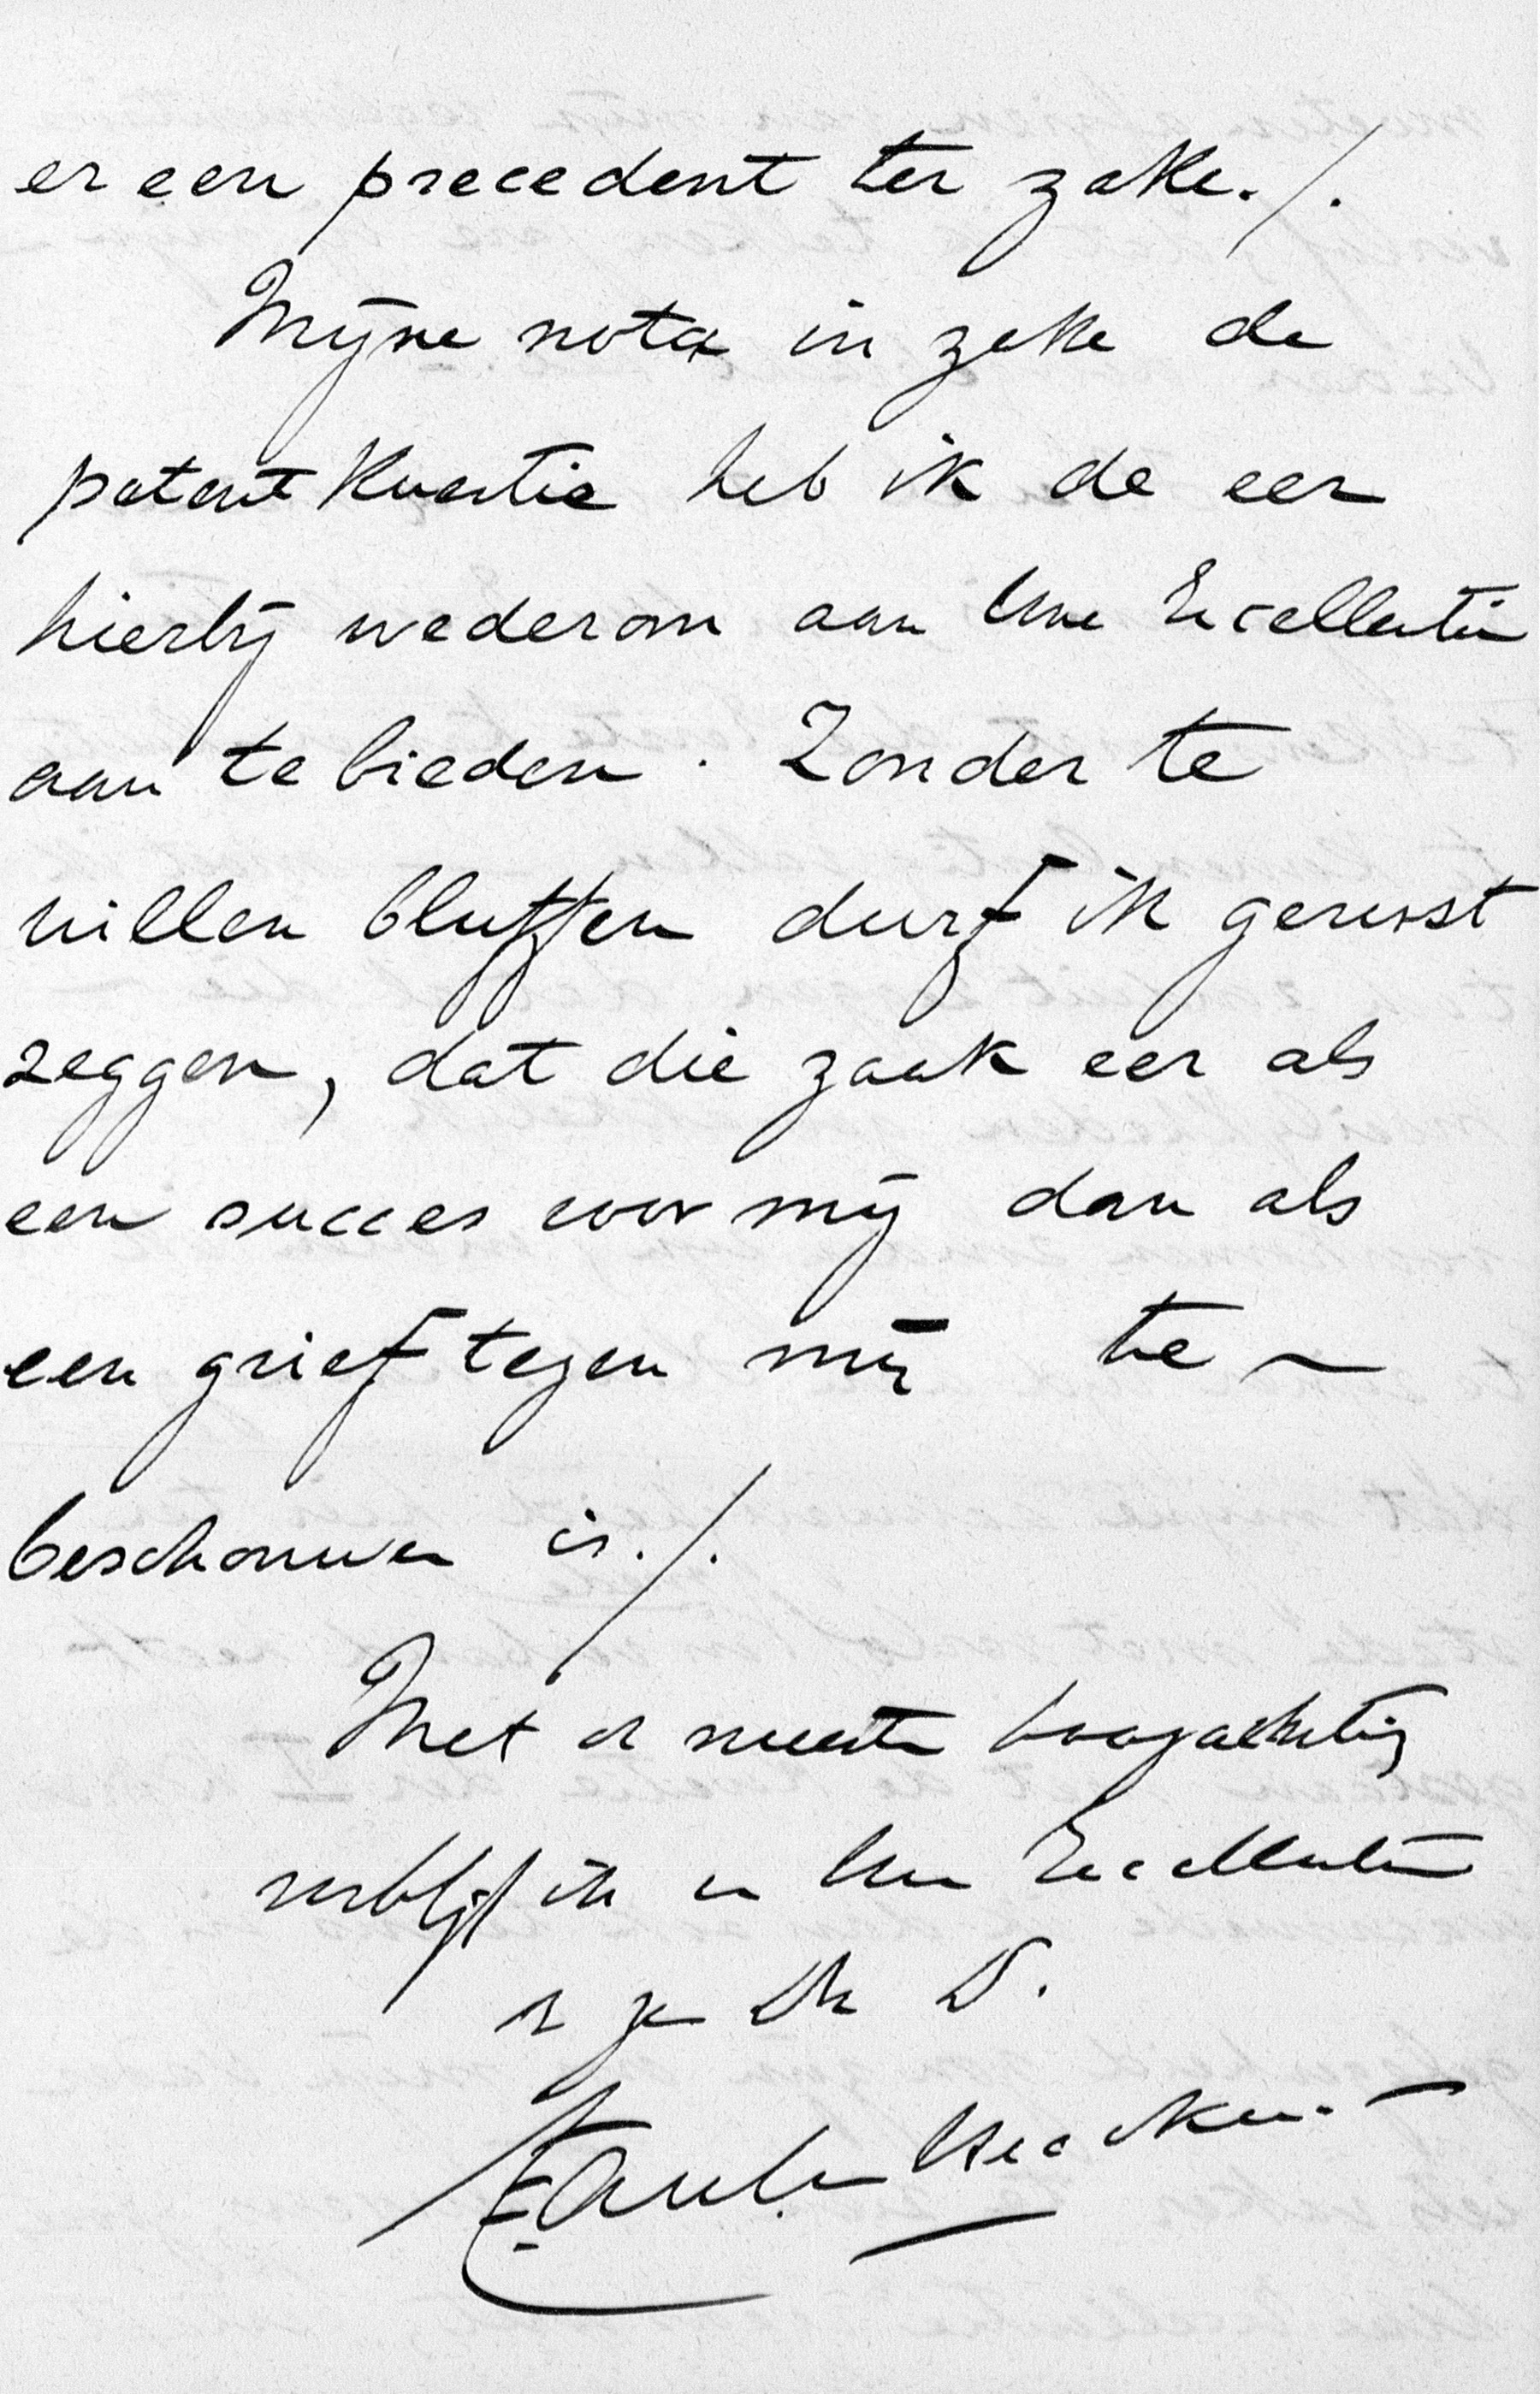 er een precedent ter zake./.
Mijne nota in zake de
patent kwestie heb ik de eer
hierbij wederom aan Uwe Excellentie
aan te bieden. Zonder te
willen bluffen durf ik gerust
zeggen, dat die zaak eer als
een succes voor mij dan als
een grief tegen mij te ~
beschouwen is./.
Met de meeste hoogachting
verblijf ik van Uwe Excellentie
D.